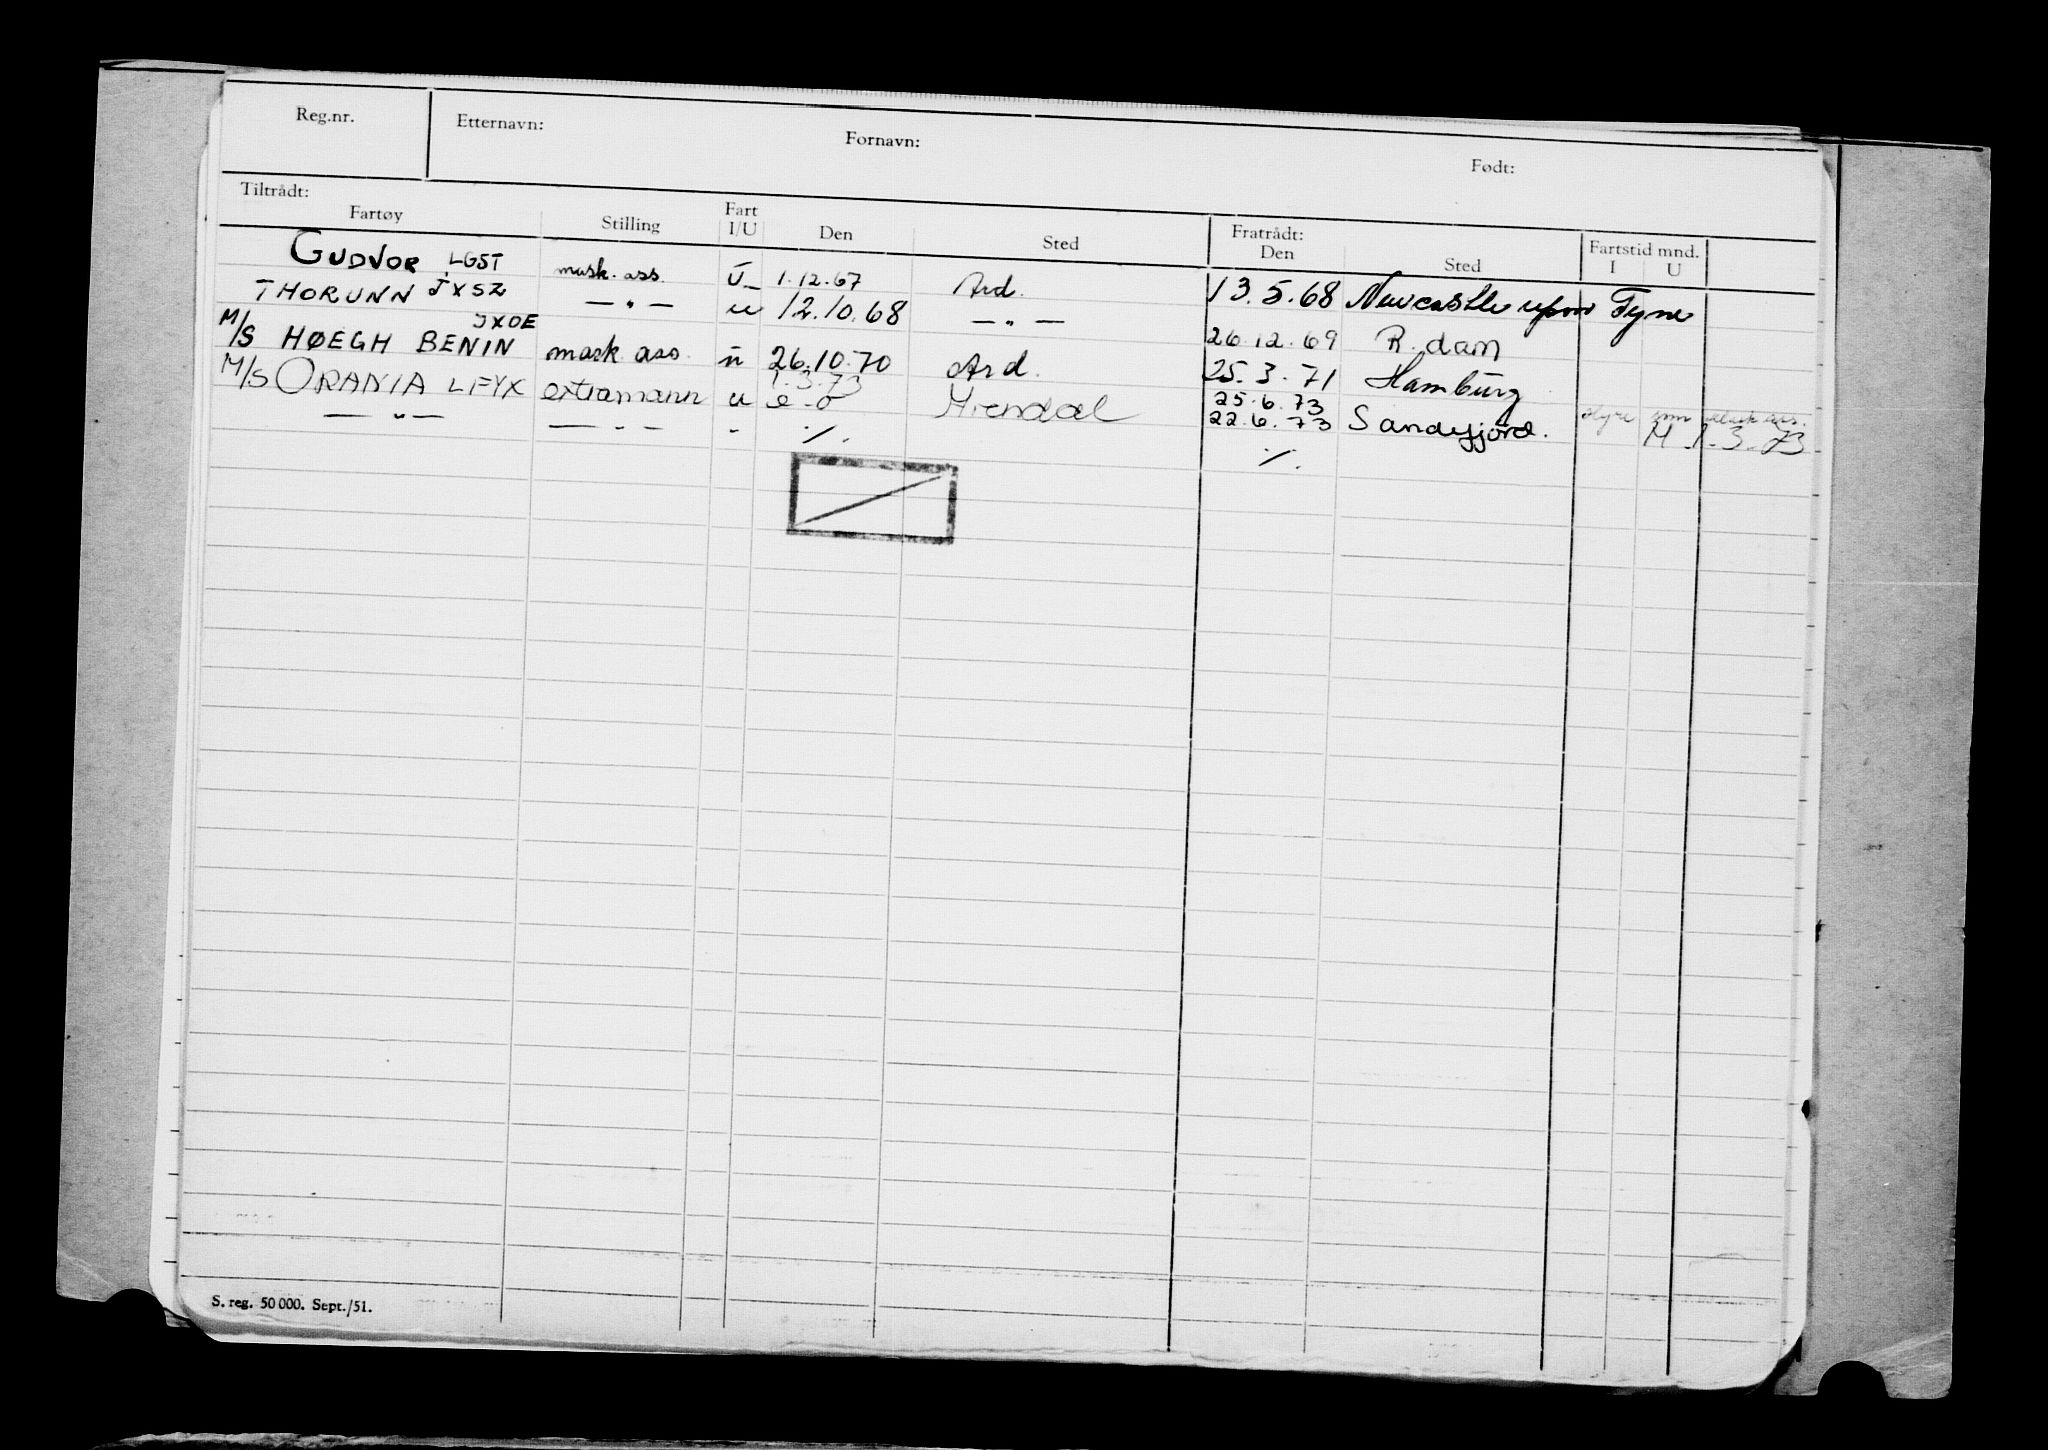 Reg.nr. Etternavn: Fornavn: Født:
Tiltrådt: Fratrådt: Fartstid mnd.
Fartøy Stilling Fart I/U Den Sted Den Sted I U
GUDVOR LGST mask. ass. U 1.12.67 Ard. 13.5.68 Newcastle upon Tyne
THORUNN JXSZ — " — u 12.10.68 — " — 26.12.69 R.dam
JXOE
M/S HØEGH BENIN mask. ass. u 26.10.70 Ard. 25.3.71 Hamburg
1.3.73 25.6.73
M/S ORANIA LFYX extramann u Arendal 22.6.73 Sandefjord. Hyre som mask. ass.
— " — — " — " ./. ./. M 1.3.73
S. reg. 50 000. Sept./51.